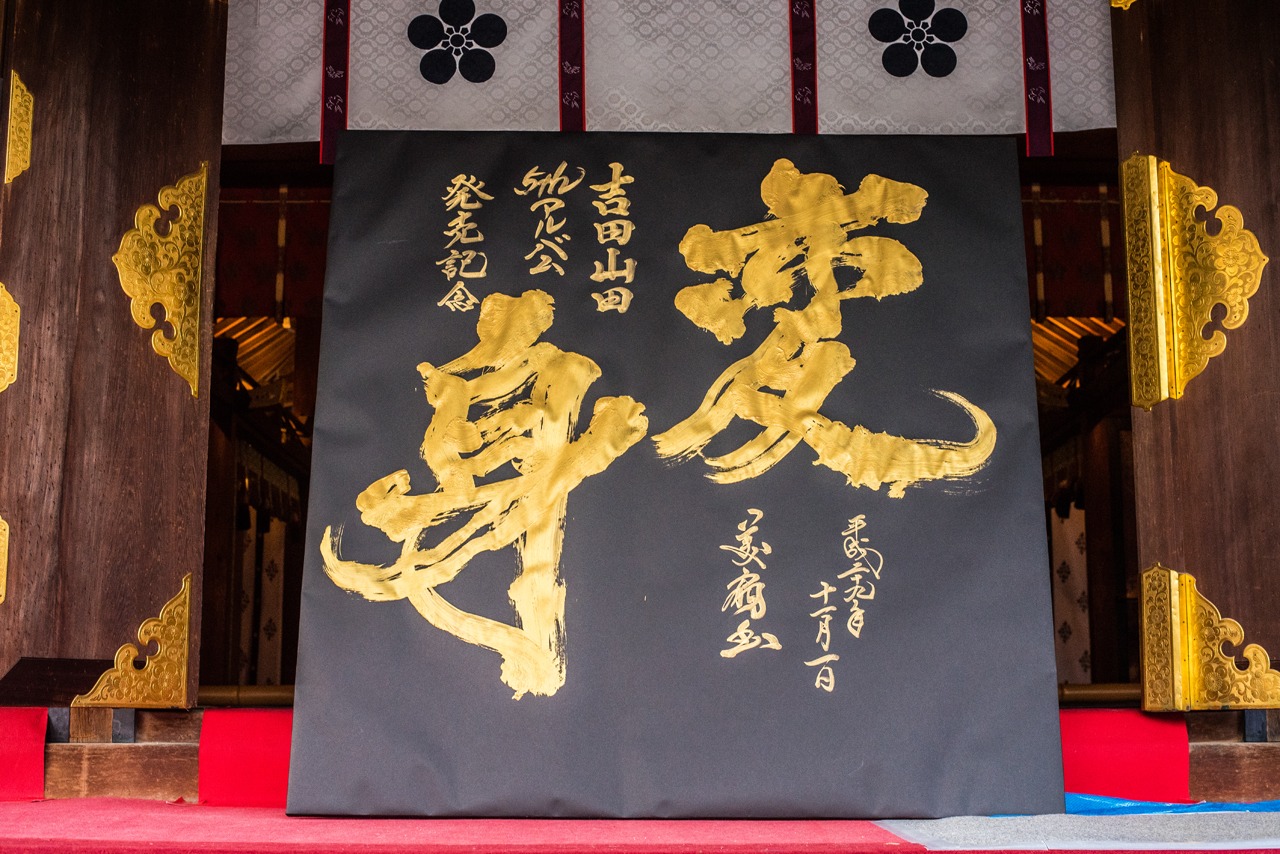 変身
吉田山田
5thアルバム
発売記念
平成二十九年
十一月一日